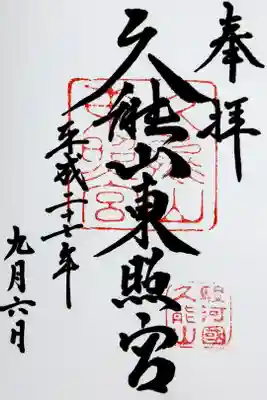 奉拝
久能山東照宮
久能山東照宮
駿河國
久能山
平成二十七年
九月六日